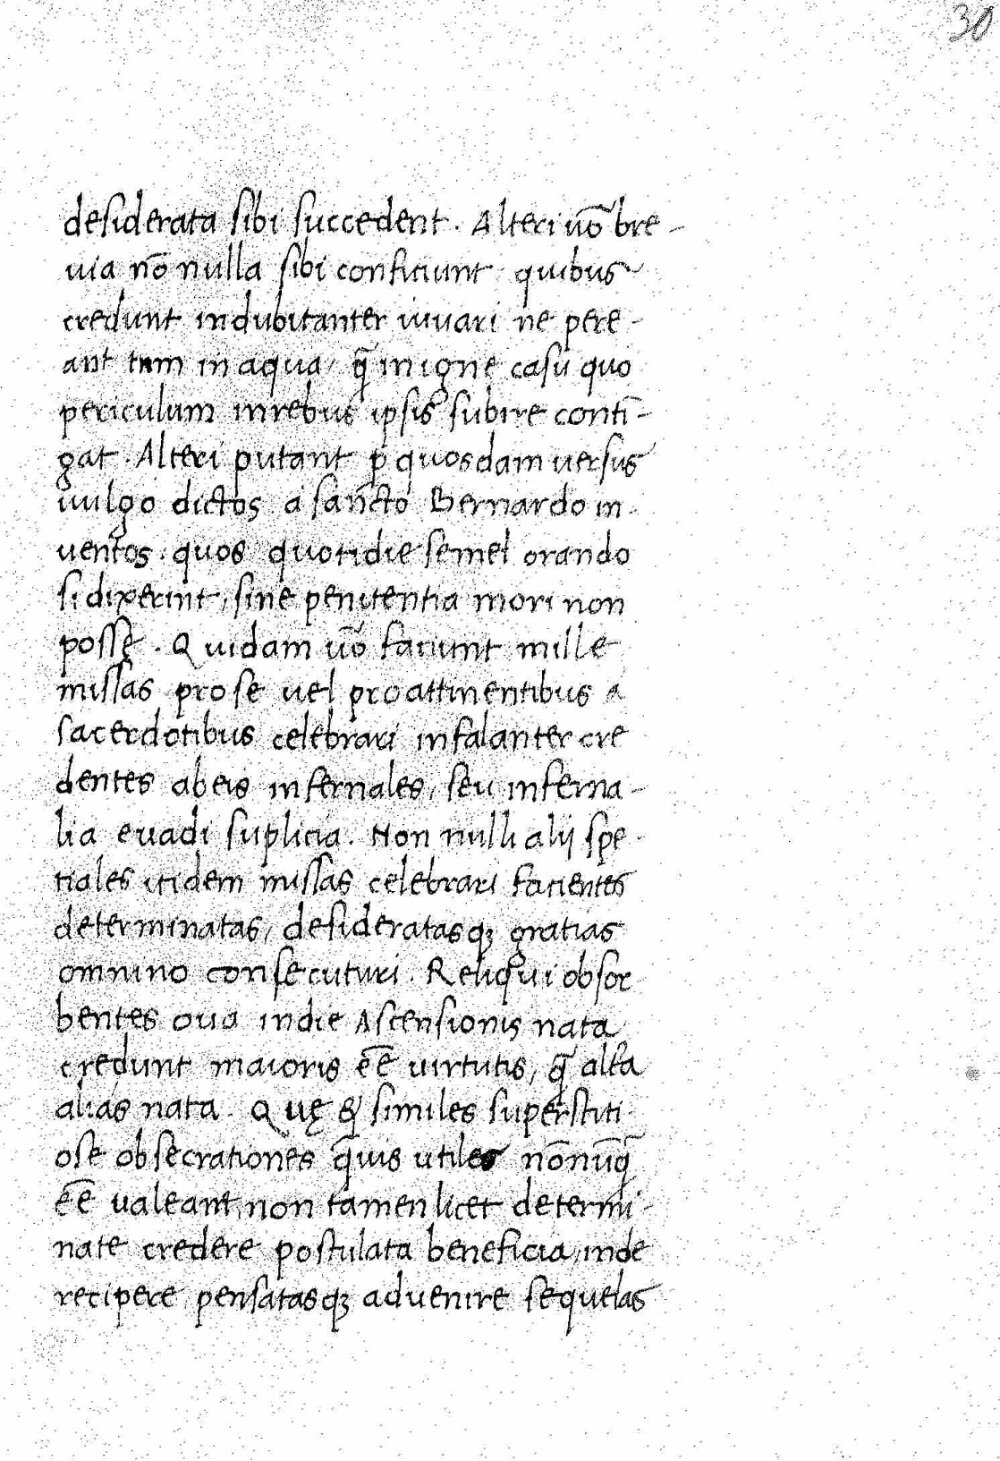 30
desiderata sibi succedent. Alteri uo͂ bre-
uia no͂ nulla sibi conficiunt quibus
credunt indubitanter iuuari ne pere-
ant tam in aqua, q̃ in igne casu quo
periculum in rebus ipsis subire conti-
gat. Alteri putant p̱ quosdam uersus
uulgo dictos a sancto Bernardo in-
uentos. quos quotidie semel orando
si dixerint, sine penitentia mori non
possę. Quidam uo͂ faciunt mille
missas pro se uel pro attinentibus a
sacerdotibus celebrari infalanter cre
dentes ab eis infernales, seu inferna-
lia euadi suplicia. Non nulli alij spe-
tiales itidem missas celebrari facientes
determinatas, desideratasqꝫ gratias
omnino consecuturi. Reliqui obsor-
bentes oua in die Ascensionis nata
credunt maioris ee͂ uirtutis, q̃ alr̃a
alias nata. Quę & similes superstiti-
ose obsecrationes q̃uis utiles no͂nuq̃
ee͂ ualeant, non tamen licet determi-
nate credere postulata beneficia, inde
recipere pensatasqꝫ aduenire sequelas